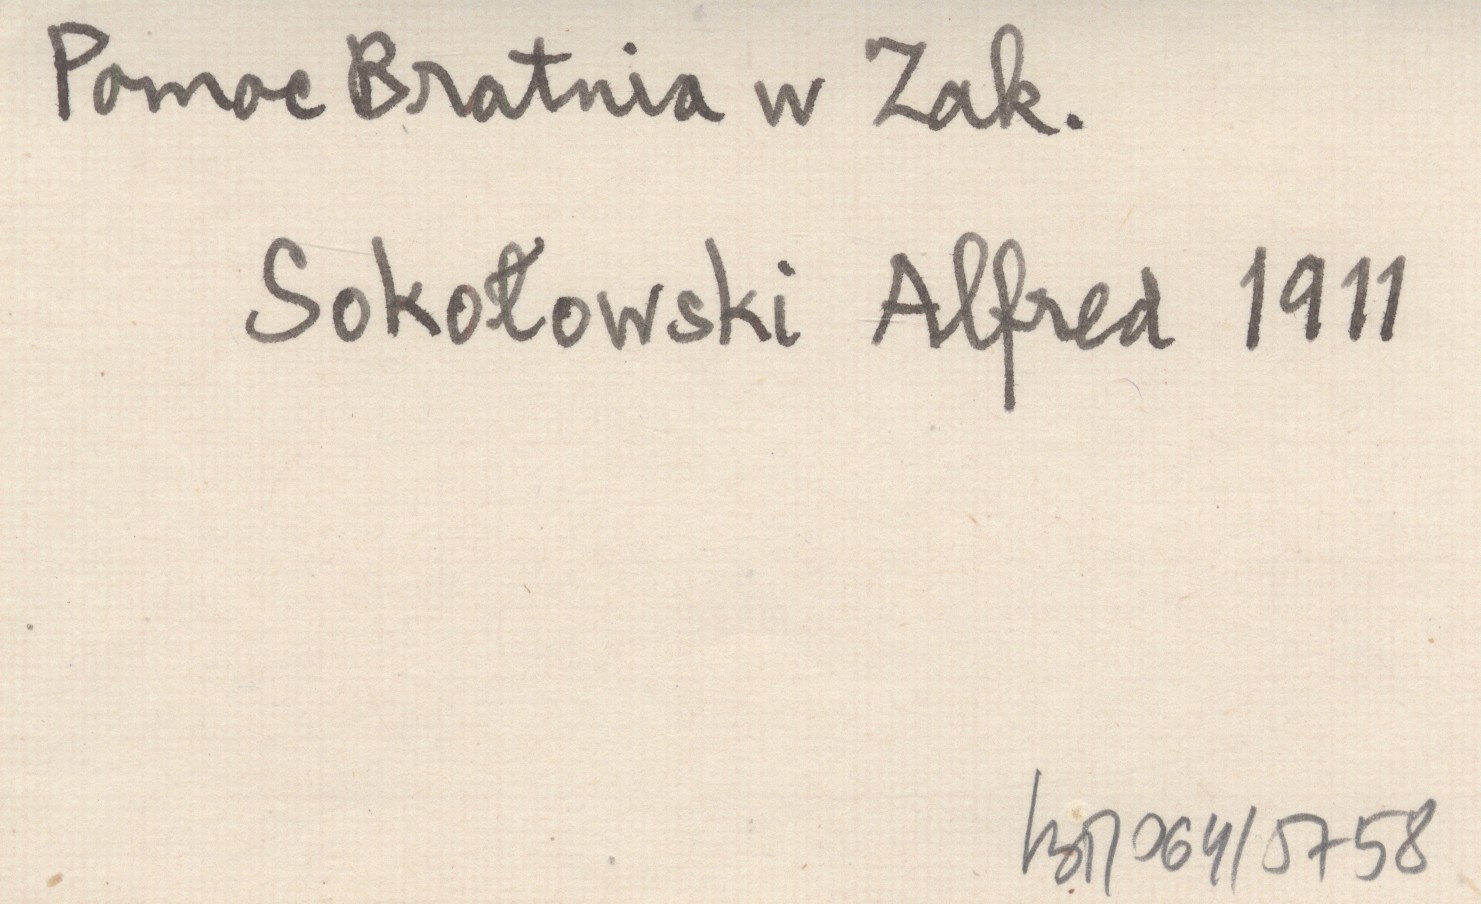 Pomoc Bratnia w Zak.
Sokołowski Alfred 1911
064/5758